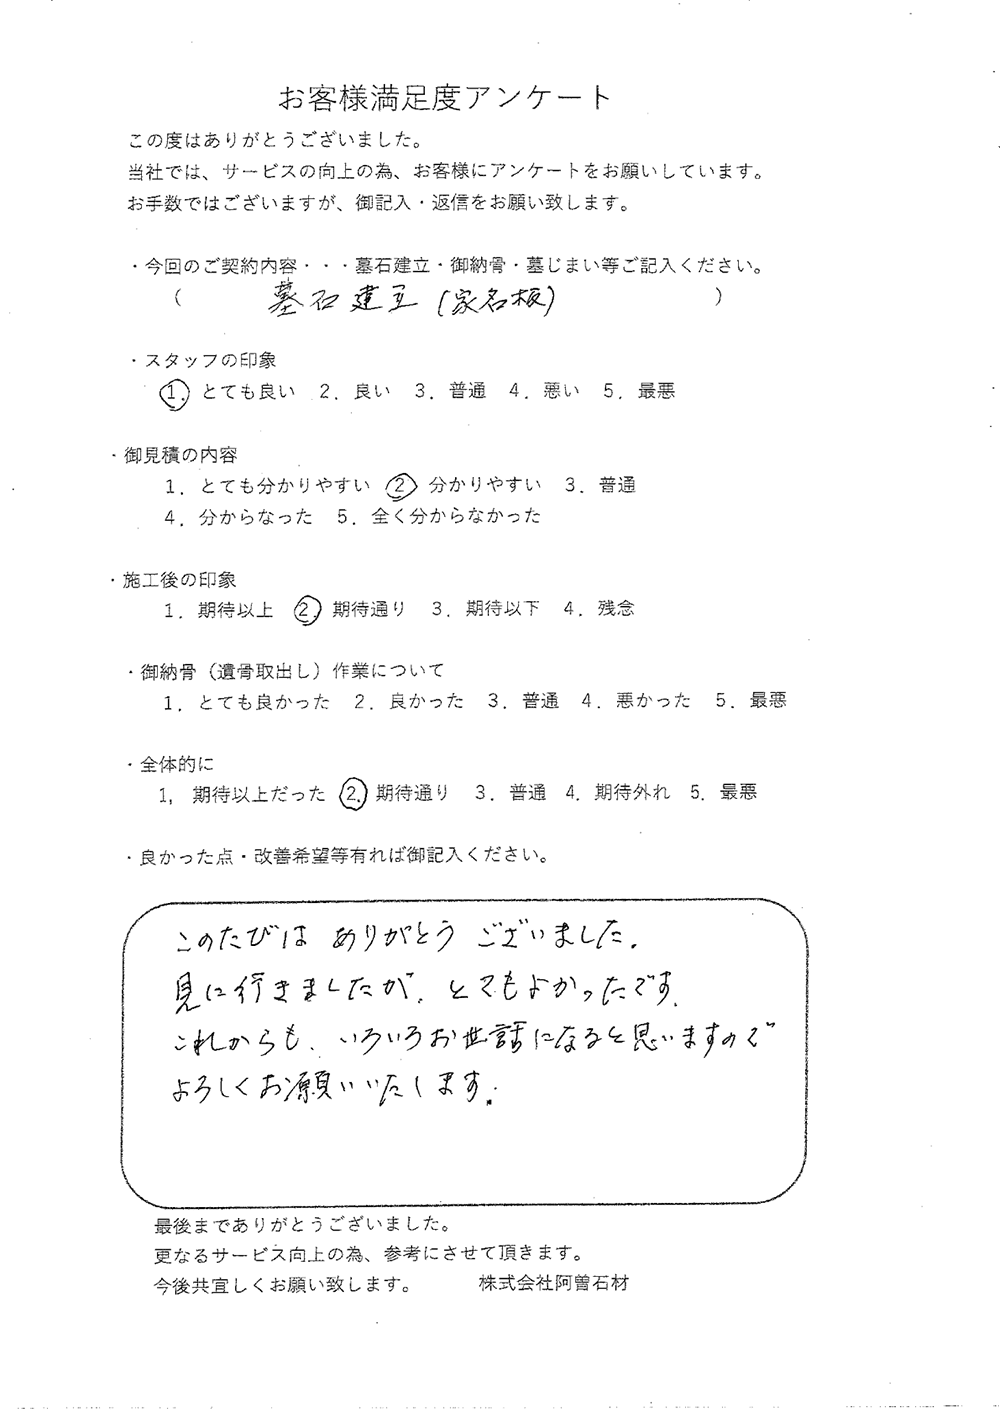 お客様満足度アンケート
この度はありがとうございました。
当社では、サービスの向上の為、お客様にアンケートをお願いしています。
お手数ではございますが、御記入・返信をお願い致します。
・今回のご契約内容・・・墓石建立・御納骨・墓じまい等ご記入ください。
(墓石建立(家名板))
・スタッフの印象
1. とても良い 2. 良い 3. 普通 4. 悪い 5. 最悪
・御見積の内容
1. とても分かりやすい 2 分かりやすい 3. 普通
4. 分からなった 5. 全く分からなかった
・施工後の印象
1. 期待以上 2. 期待通り 3. 期待以下 4. 残念
・御納骨(遺骨取出し)作業について
1. とても良かった 2. 良かった 3. 普通 4. 悪かった 5. 最悪
・全体的に
1, 期待以上だった 2. 期待通り 3. 普通 4. 期待外れ 5. 最悪
・良かった点・改善希望等有れば御記入ください。
このたびは ありがとう ございました.
見に行きましたが、とてもよかったです.
これからも、いろいろお世話になると思いますので
よろしくお願いいたします.
最後までありがとうございました。
更なるサービス向上の為、参考にさせて頂きます。
今後共宜しくお願い致します。 株式会社阿曽石材